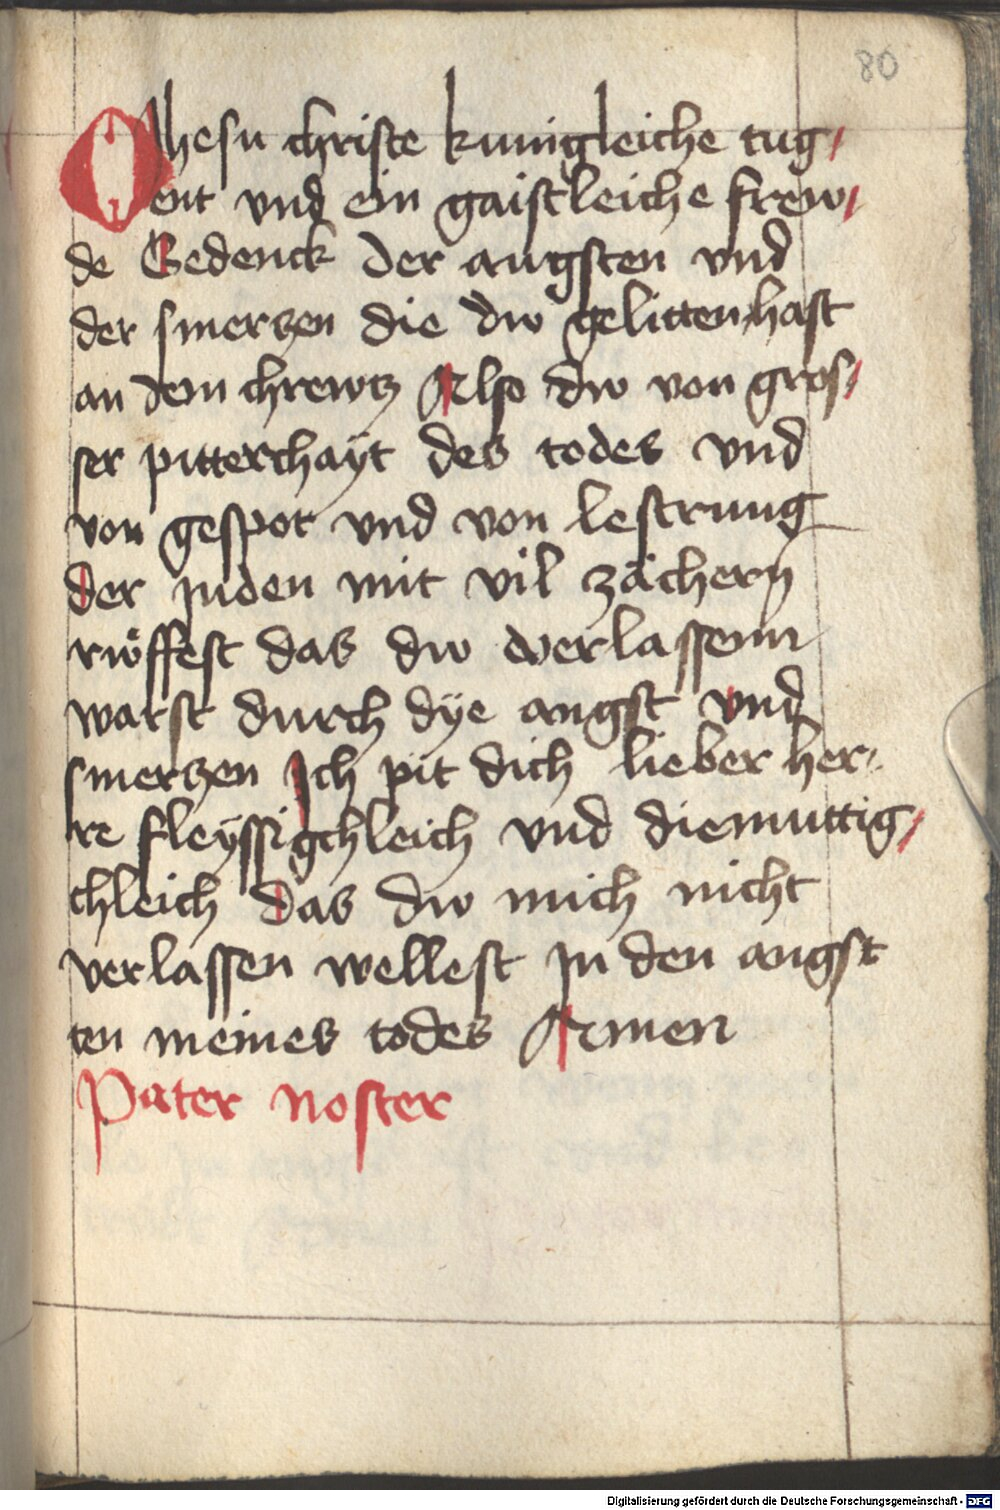 80
O Jhesu christe kunigleiche tug/
ent vnd ein gaistleiche frew/
de Gedenck der angsten vnd
der smerczen die dw gelitten hast
an dem chrewtz Also dw von gros/
ser pitterchaÿt des todes vnd
von gespot vnd von lestrung
der juden mit vil zächern
rwöffest das dw verlassenn
warst durch dÿe angst vnd
smerczen Ich pit dich lieber her/
re fleÿssigchleich vnd diemuttig/
chleich das dw mich nicht
verlassen wellest jn den angst
ten meines todes Amen
Pater noster
Digitalisierung gefördert durch die Deutsche Forschungsgemeinschaft - DFG